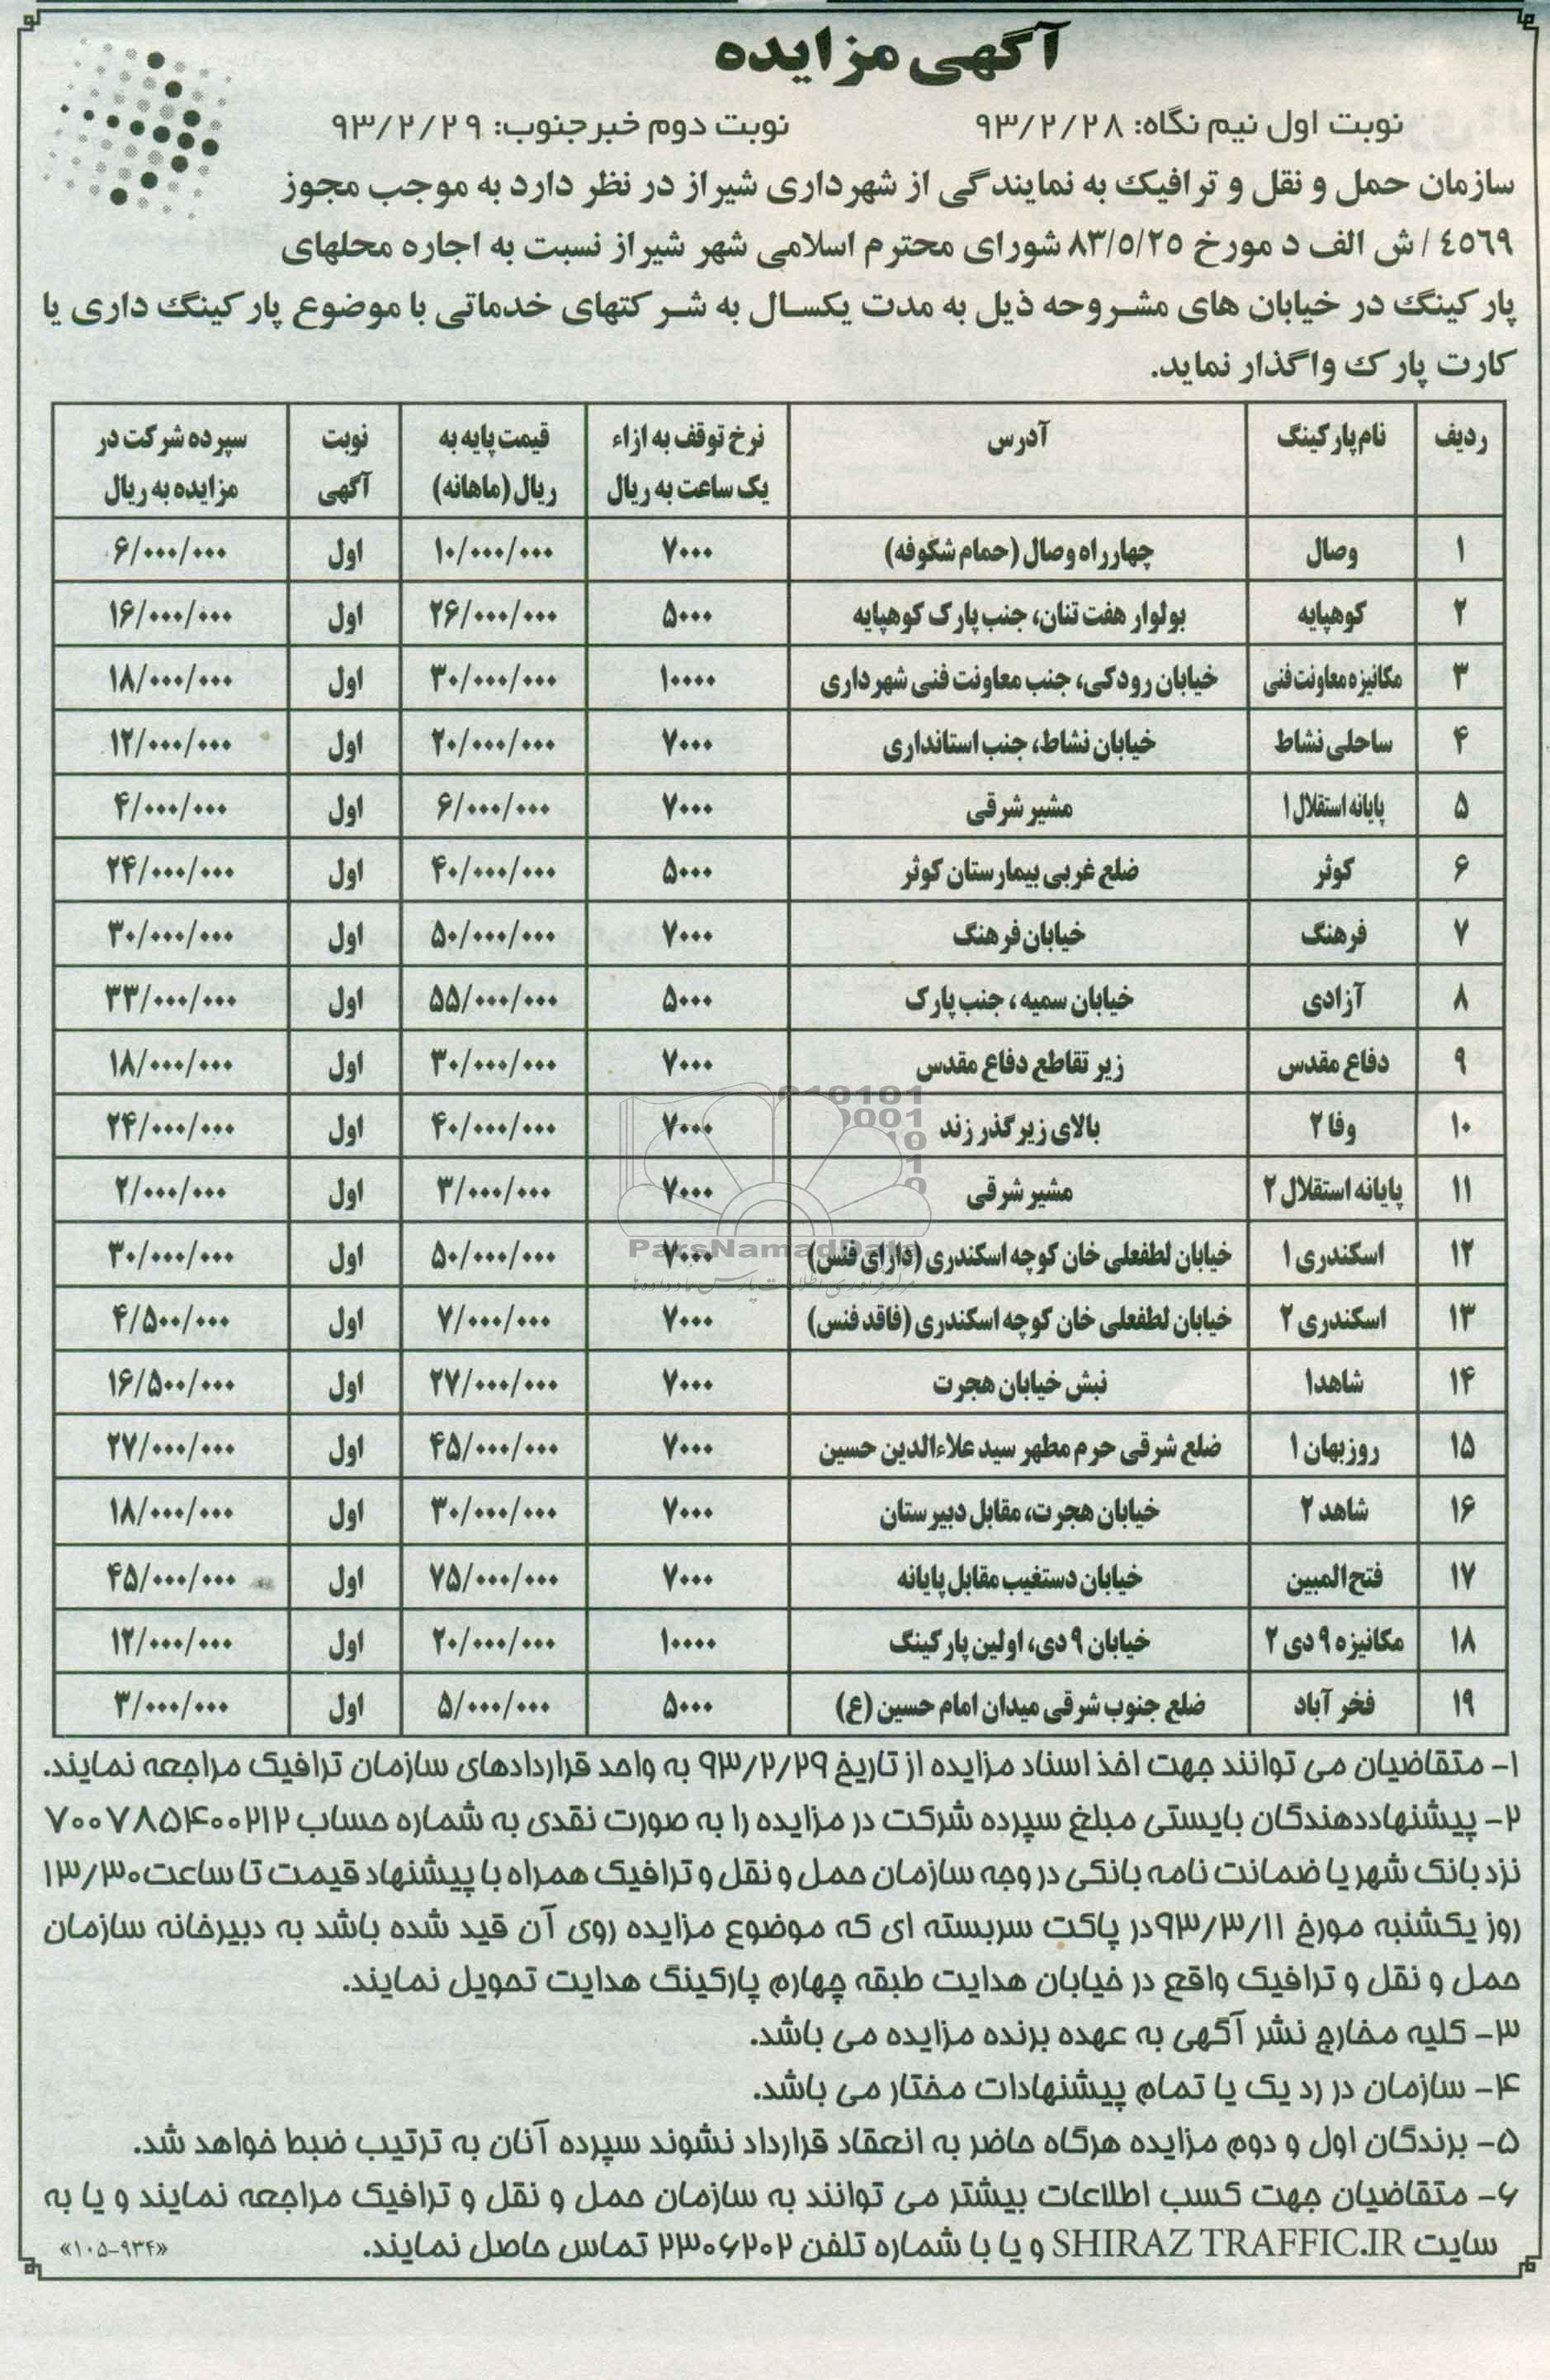 آگهی مزایده
نوبت اول نیم نگاه: ۹۳/۲/۲۸ نوبت دوم خبرجنوب: ۹۳/۲/۲۹
سازمان حمل و نقل و ترافیک به نمایندگی از شهرداری شیراز در نظر دارد به موجب مجوز
۴۵۶۹/ ش الف د مورخ ۸۳/۵/۲۵ شورای محترم اسلامی شهر شیراز نسبت به اجاره محلهای
پارکینگ در خیابان های مشروحه ذیل به مدت یکسال به شرکتهای خدماتی با موضوع پارکینگ داری یا
کارت پارک واگذار نماید.
ردیف نام پارکینگ آدرس نرخ توقف به ازاء یک ساعت به ریال قیمت پایه به ریال (ماهانه) نوبت آگهی سپرده شرکت در مزایده به ریال
۱ وصال چهارراه وصال (حمام شکوفه) ۷۰۰۰ ۱۰/۰۰۰/۰۰۰ اول ۶/۰۰۰/۰۰۰
۲ کوهپایه بولوار هفت تنان، جنب پارک کوهپایه ۵۰۰۰ ۲۶/۰۰۰/۰۰۰ اول ۱۶/۰۰۰/۰۰۰
۳ مکانیزه معاونت فنی خیابان رودکی، جنب معاونت فنی شهرداری ۱۰۰۰۰ ۳۰/۰۰۰/۰۰۰ اول ۱۸/۰۰۰/۰۰۰
۴ ساحلی نشاط خیابان نشاط، جنب استانداری ۷۰۰۰ ۲۰/۰۰۰/۰۰۰ اول ۱۲/۰۰۰/۰۰۰
۵ پایانه استقلال ۱ مشیر شرقی ۷۰۰۰ ۶/۰۰۰/۰۰۰ اول ۴/۰۰۰/۰۰۰
۶ کوثر ضلع غربی بیمارستان کوثر ۵۰۰۰ ۴۰/۰۰۰/۰۰۰ اول ۲۴/۰۰۰/۰۰۰
۷ فرهنگ خیابان فرهنگ ۷۰۰۰ ۵۰/۰۰۰/۰۰۰ اول ۳۰/۰۰۰/۰۰۰
۸ آزادی خیابان سمیه، جنب پارک ۵۰۰۰ ۵۵/۰۰۰/۰۰۰ اول ۳۳/۰۰۰/۰۰۰
۹ دفاع مقدس زیر تقاطع دفاع مقدس ۷۰۰۰ ۳۰/۰۰۰/۰۰۰ اول ۱۸/۰۰۰/۰۰۰
۱۰ وفا ۲ بالای زیرگذر زند ۷۰۰۰ ۴۰/۰۰۰/۰۰۰ اول ۲۴/۰۰۰/۰۰۰
۱۱ پایانه استقلال ۲ مشیر شرقی ۷۰۰۰ ۳/۰۰۰/۰۰۰ اول ۲/۰۰۰/۰۰۰
۱۲ اسکندری ۱ خیابان لطفعلی خان کوچه اسکندری (دارای فنس) ۷۰۰۰ ۵۰/۰۰۰/۰۰۰ اول ۳۰/۰۰۰/۰۰۰
۱۳ اسکندری ۲ خیابان لطفعلی خان کوچه اسکندری (فاقد فنس) ۷۰۰۰ ۷/۰۰۰/۰۰۰ اول ۴/۵۰۰/۰۰۰
۱۴ شاهد۱ نبش خیابان هجرت ۷۰۰۰ ۲۷/۰۰۰/۰۰۰ اول ۱۶/۵۰۰/۰۰۰
۱۵ روزبهان ۱ ضلع شرقی حرم مطهر سید علاءالدین حسین ۷۰۰۰ ۴۵/۰۰۰/۰۰۰ اول ۲۷/۰۰۰/۰۰۰
۱۶ شاهد ۲ خیابان هجرت، مقابل دبیرستان ۷۰۰۰ ۳۰/۰۰۰/۰۰۰ اول ۱۸/۰۰۰/۰۰۰
۱۷ فتح المبین خیابان دستغیب مقابل پایانه ۷۰۰۰ ۷۵/۰۰۰/۰۰۰ اول ۴۵/۰۰۰/۰۰۰
۱۸ مکانیزه ۹ دی ۲ خیابان ۹ دی، اولین پارکینگ ۱۰۰۰۰ ۲۰/۰۰۰/۰۰۰ اول ۱۲/۰۰۰/۰۰۰
۱۹ فخر آباد ضلع جنوب شرقی میدان امام حسین (ع) ۵۰۰۰ ۵/۰۰۰/۰۰۰ اول ۳/۰۰۰/۰۰۰
ParsNamadData
۱- متقاضیان می توانند جهت اخذ اسناد مزایده از تاریخ ۹۳/۲/۲۹ به واحد قراردادهای سازمان ترافیک مراجعه نمایند.
۲- پیشنهاددهندگان بایستی مبلغ سپرده شرکت در مزایده را به صورت نقدی به شماره حساب ۷۰۰۷۸۵۴۰۰۲۱۲
نزد بانک شهر یا ضمانت نامه بانکی در وجه سازمان حمل و نقل و ترافیک همراه با پیشنهاد قیمت تا ساعت ۱۳/۳۰
روز یکشنبه مورخ ۹۳/۳/۱۱در پاکت سربسته ای که موضوع مزایده روی آن قید شده باشد به دبیرخانه سازمان
حمل و نقل و ترافیک واقع در خیابان هدایت طبقه چهارم پارکینگ هدایت تحویل نمایند.
۳- کلیه مخارج نشر آگهی به عهده برنده مزایده می باشد.
۴- سازمان در رد یک یا تمام پیشنهادات مختار می باشد.
۵- برندگان اول و دوم مزایده هرگاه حاضر به انعقاد قرارداد نشوند سپرده آنان به ترتیب ضبط خواهد شد.
۶- متقاضیان جهت کسب اطلاعات بیشتر می توانند به سازمان حمل و نقل و ترافیک مراجعه نمایند و یا به
سایت SHIRAZ TRAFFIC.IR و یا با شماره تلفن ۲۳۰۶۲۰۲ تماس حاصل نمایند. «۱۰۵-۹۳۴»